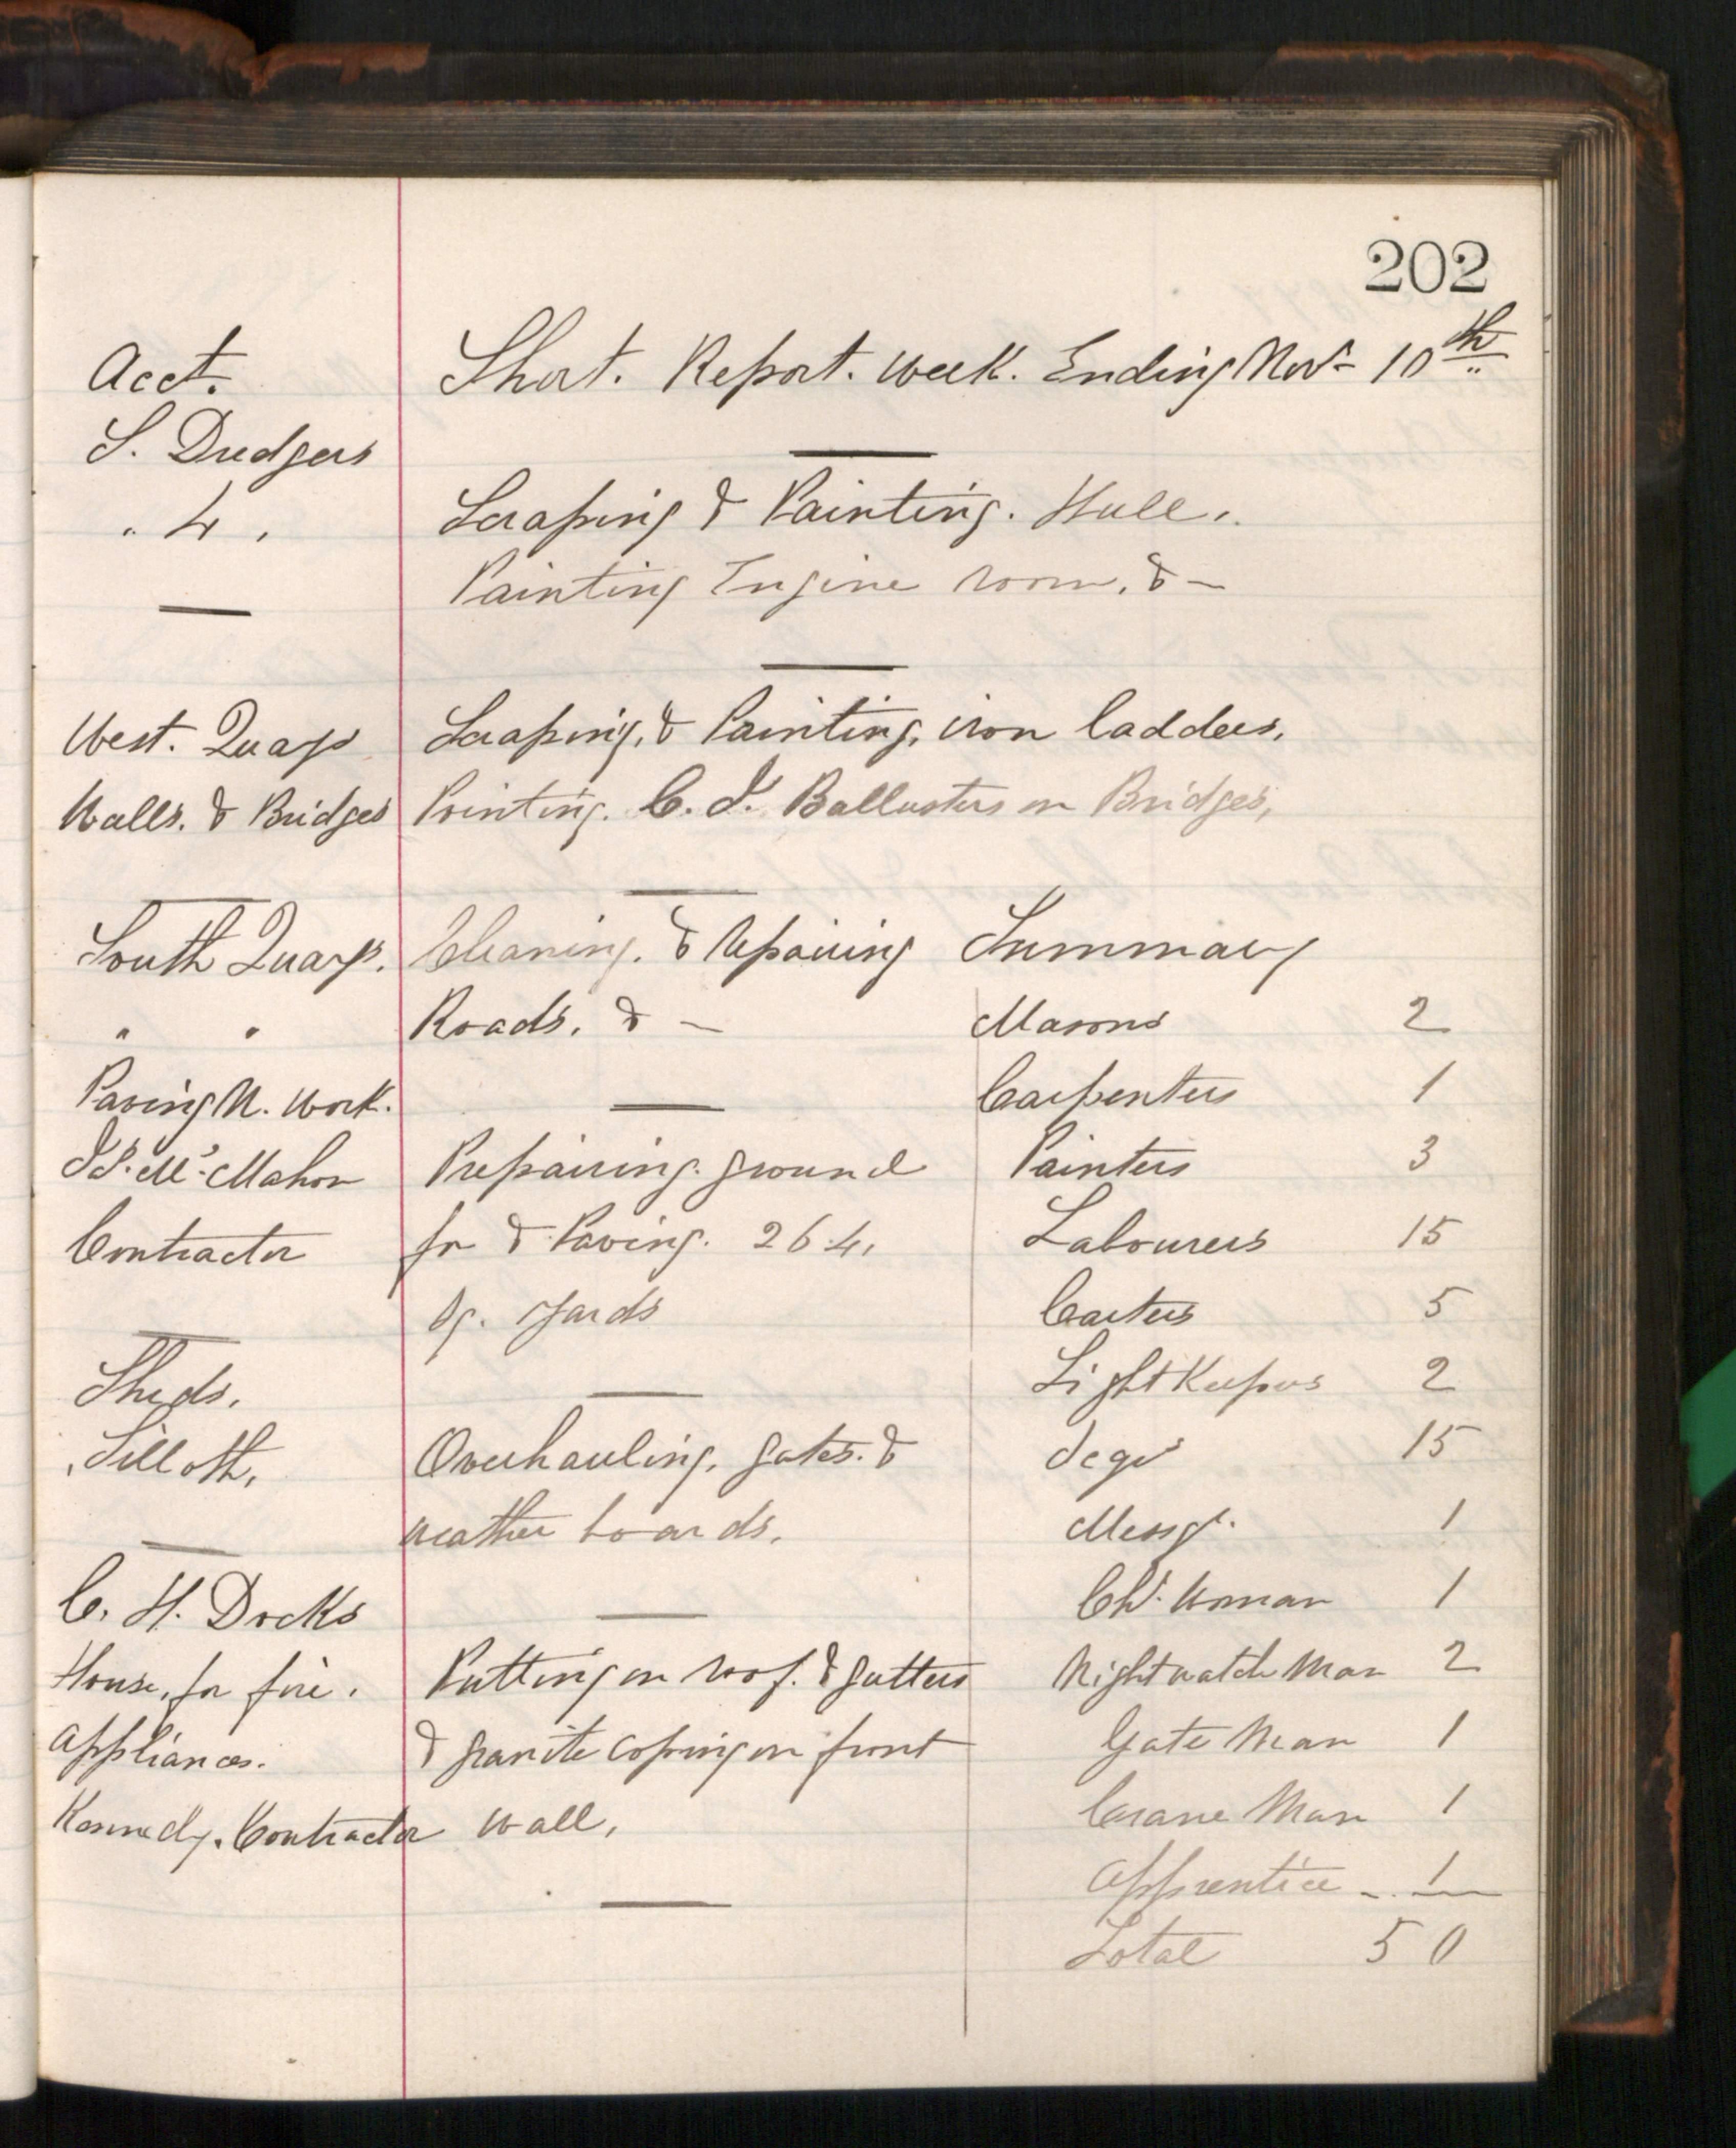 202
Acct. Short. Report. Week. Ending Nov- 10th
S. Dredgers
" 4 " Scraping & Painting. Hull.
Painting Engine room. & -
West. Quay Scraping, & Painting, iron ladders,
Walls. & Bridges Painting. C. I. Ballusters on Bridges,
South Quay. Cleaning. & repairing Summary
" " Roads. & - Masons 2
Paving N. Work. Carpenters 1
McMahon Prepairing. ground Painters 3
Contractor for & Paving. 264, Labourers 15
Sq. yards Carters 5
Sheds. Light Keepers 2
Silloth, Overhauling. gates. & 15
weather boards. Messgr. 1
C. H. Docks Chr. Woman 1
House, for fire. Putting on roof. & gutters Night watch Man 2
appliances. & granite coping on front Gate Man 1
Kennedy. Contractor wall, Crane Man 1
Apprentice 1
Total 50